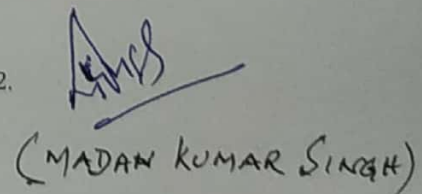 2.
(MADAN KUMAR SINGH)